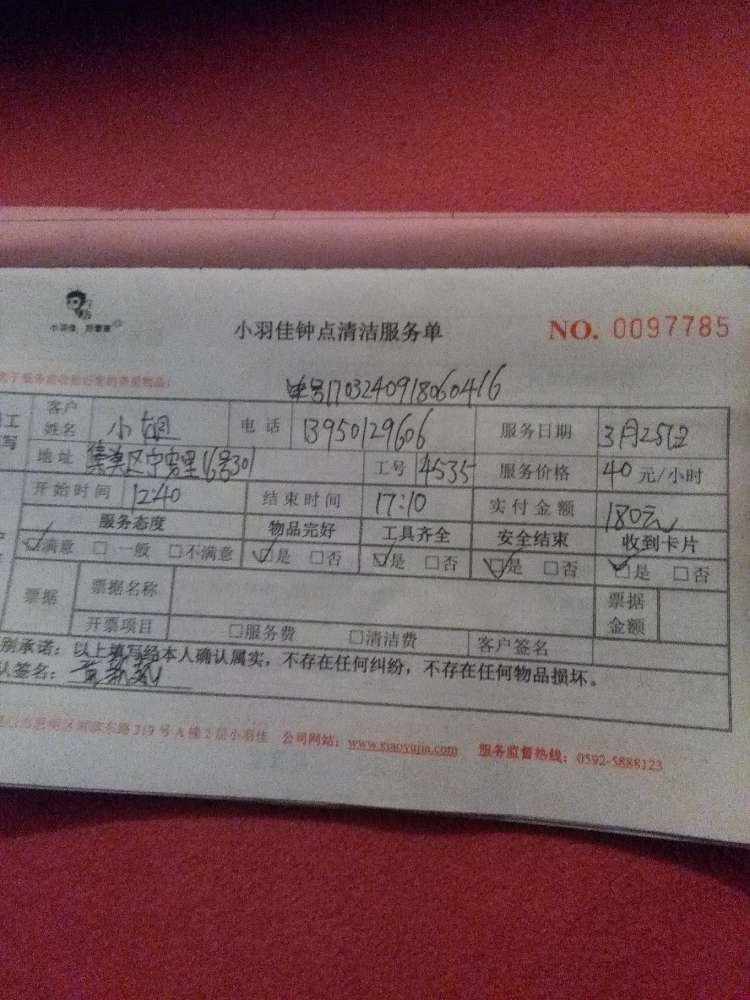 小羽佳
小羽佳钟点清洁服务单 NO. 0097785
单号1703240918060416
客户姓名 小 电话 13950129606 服务日期 3月25日
地址 集美区宁宝里16号301 工号 4535 服务价格 40 元/小时
开始时间 12:40 结束时间 17:10 实付金额 180元
服务态度 物品完好 工具齐全 安全结束 收到卡片
☑满意 □一般 □不满意 ☑是 □否 ☑是 □否 ☑是 □否 ☑是 □否
票据 票据名称 票据金额
开票项目 □服务费 □清洁费 客户签名
别承诺：以上填写经本人确认属实，不存在任何纠纷，不存在任何物品损坏。
认签名：
路319号A幢2层小羽佳 公司网站：www.xiaoyujia.com 服务监督热线：0592-5888123